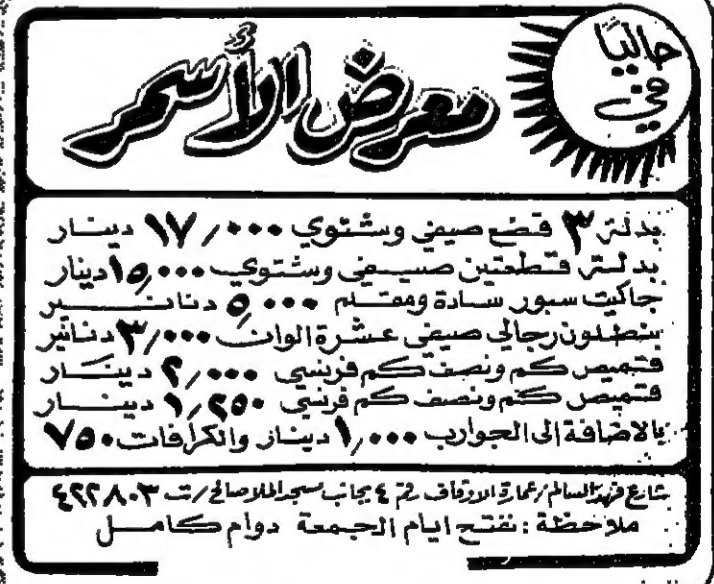 حاليًا
في
معرض الأسمر
بدلة ٣ قطع صيفي وشتوي ١٧,٠٠٠ دينار
بدلة قطعتين صيفي وشتوي ١٥,٠٠٠ دينار
جاكيت سبور سادة ومقلم ٥,٠٠٠ دنانير
بنطلون رجالي صيفي عشرة الوان ٣,٠٠٠ دنانير
قميص كم ونصف كم فرنسي ٢,٠٠٠ دينار
قميص كم ونصف كم فرنسي ١,٢٥٠ دينار
بالاضافة الى الجوارب ١,٠٠٠ دينار والكرافات ٧٥٠
شارع فهد السالم / عمارة الاوقاف رقم ٤ بجانب مسجد الملا صالح / ت ٤٢٢٨٠٣
ملاحظة : نفتح ايام الجمعة دوام كامل